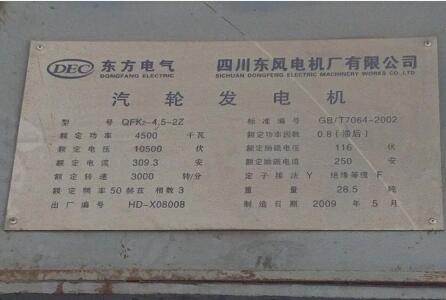 DEC 东方电气 四川东风电机厂有限公司
DONGFANG ELECTRIC SICHUAN DONGFENG ELECTRIC MACHINERY WORKS CO.,LTD
汽轮发电机
型号 QFK2-4.5-2Z 标准编号 GB/T7064-2002
额定功率 4500 千瓦 额定功率因数 0.8(滞后)
额定电压 10500 伏 额定励磁电压 116 伏
额定电流 309.3 安 额定励磁电流 250 安
额定转速 3000 转/分 定子接法 Y 绝缘等级 F
额定频率 50 赫兹 相数 3 重量 28.5 吨
出厂编号 HD-X08008 制造日期 2009 年 5 月